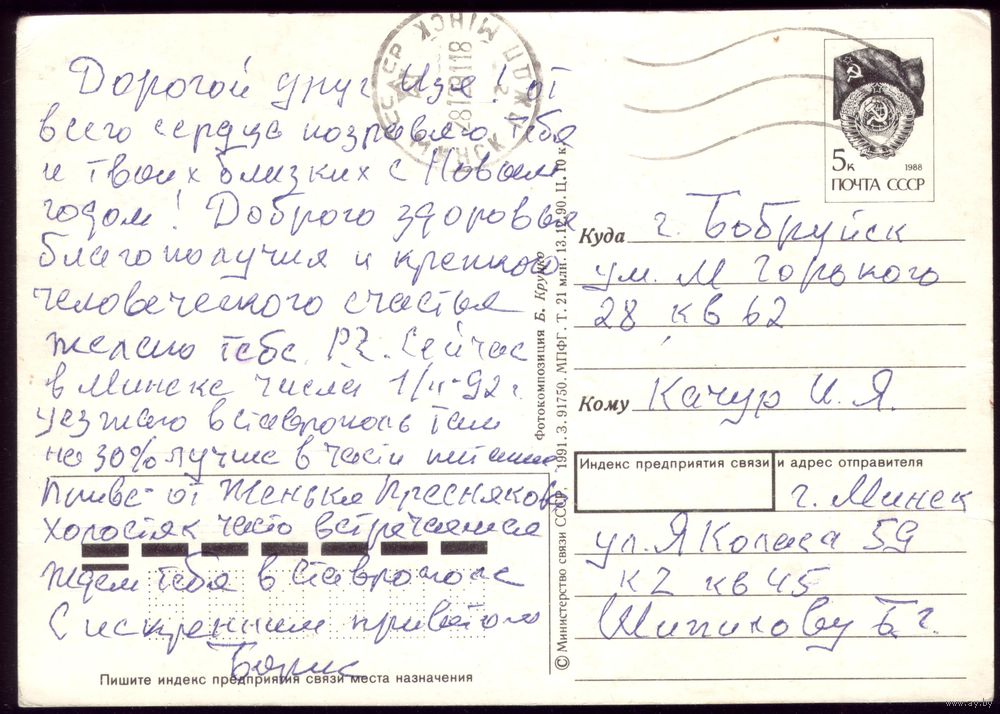 Дорогой друг Изя! от
всего сердца поздравляю тебя
и твоих близких с Новым
годом! Доброго здоровья
благополучия и крепкого
человеческого счастья
желаю тебе. Сейчас
в Минске числа 1/II-92 г
уезжаю в Ставрополь там
на 30% лучше в части питания
Привет от Женьки Преснякова
Холостяк часто встречаемся
Ждем тебя в Ставрополе
С искренним приветом
Борис
Пишите индекс предприятия связи места назначения
МІНСК
МИНСК
5к
1988
ПОЧТА СССР
Куда г. Бобруйск
ул. М Горького
28 кв 62
Кому Качур И. Я.
Индекс предприятия связи и адрес отправителя
г. Минск
ул. Я Коласа 59
к2 кв 45
Б г.
Фотокомпозиция Б. Круцко
© Министерство связи СССР, 1991. З. 91750. МПФГ. Т. 21 млн. 13.12.90. Ц. 10 к.
www.ay.by